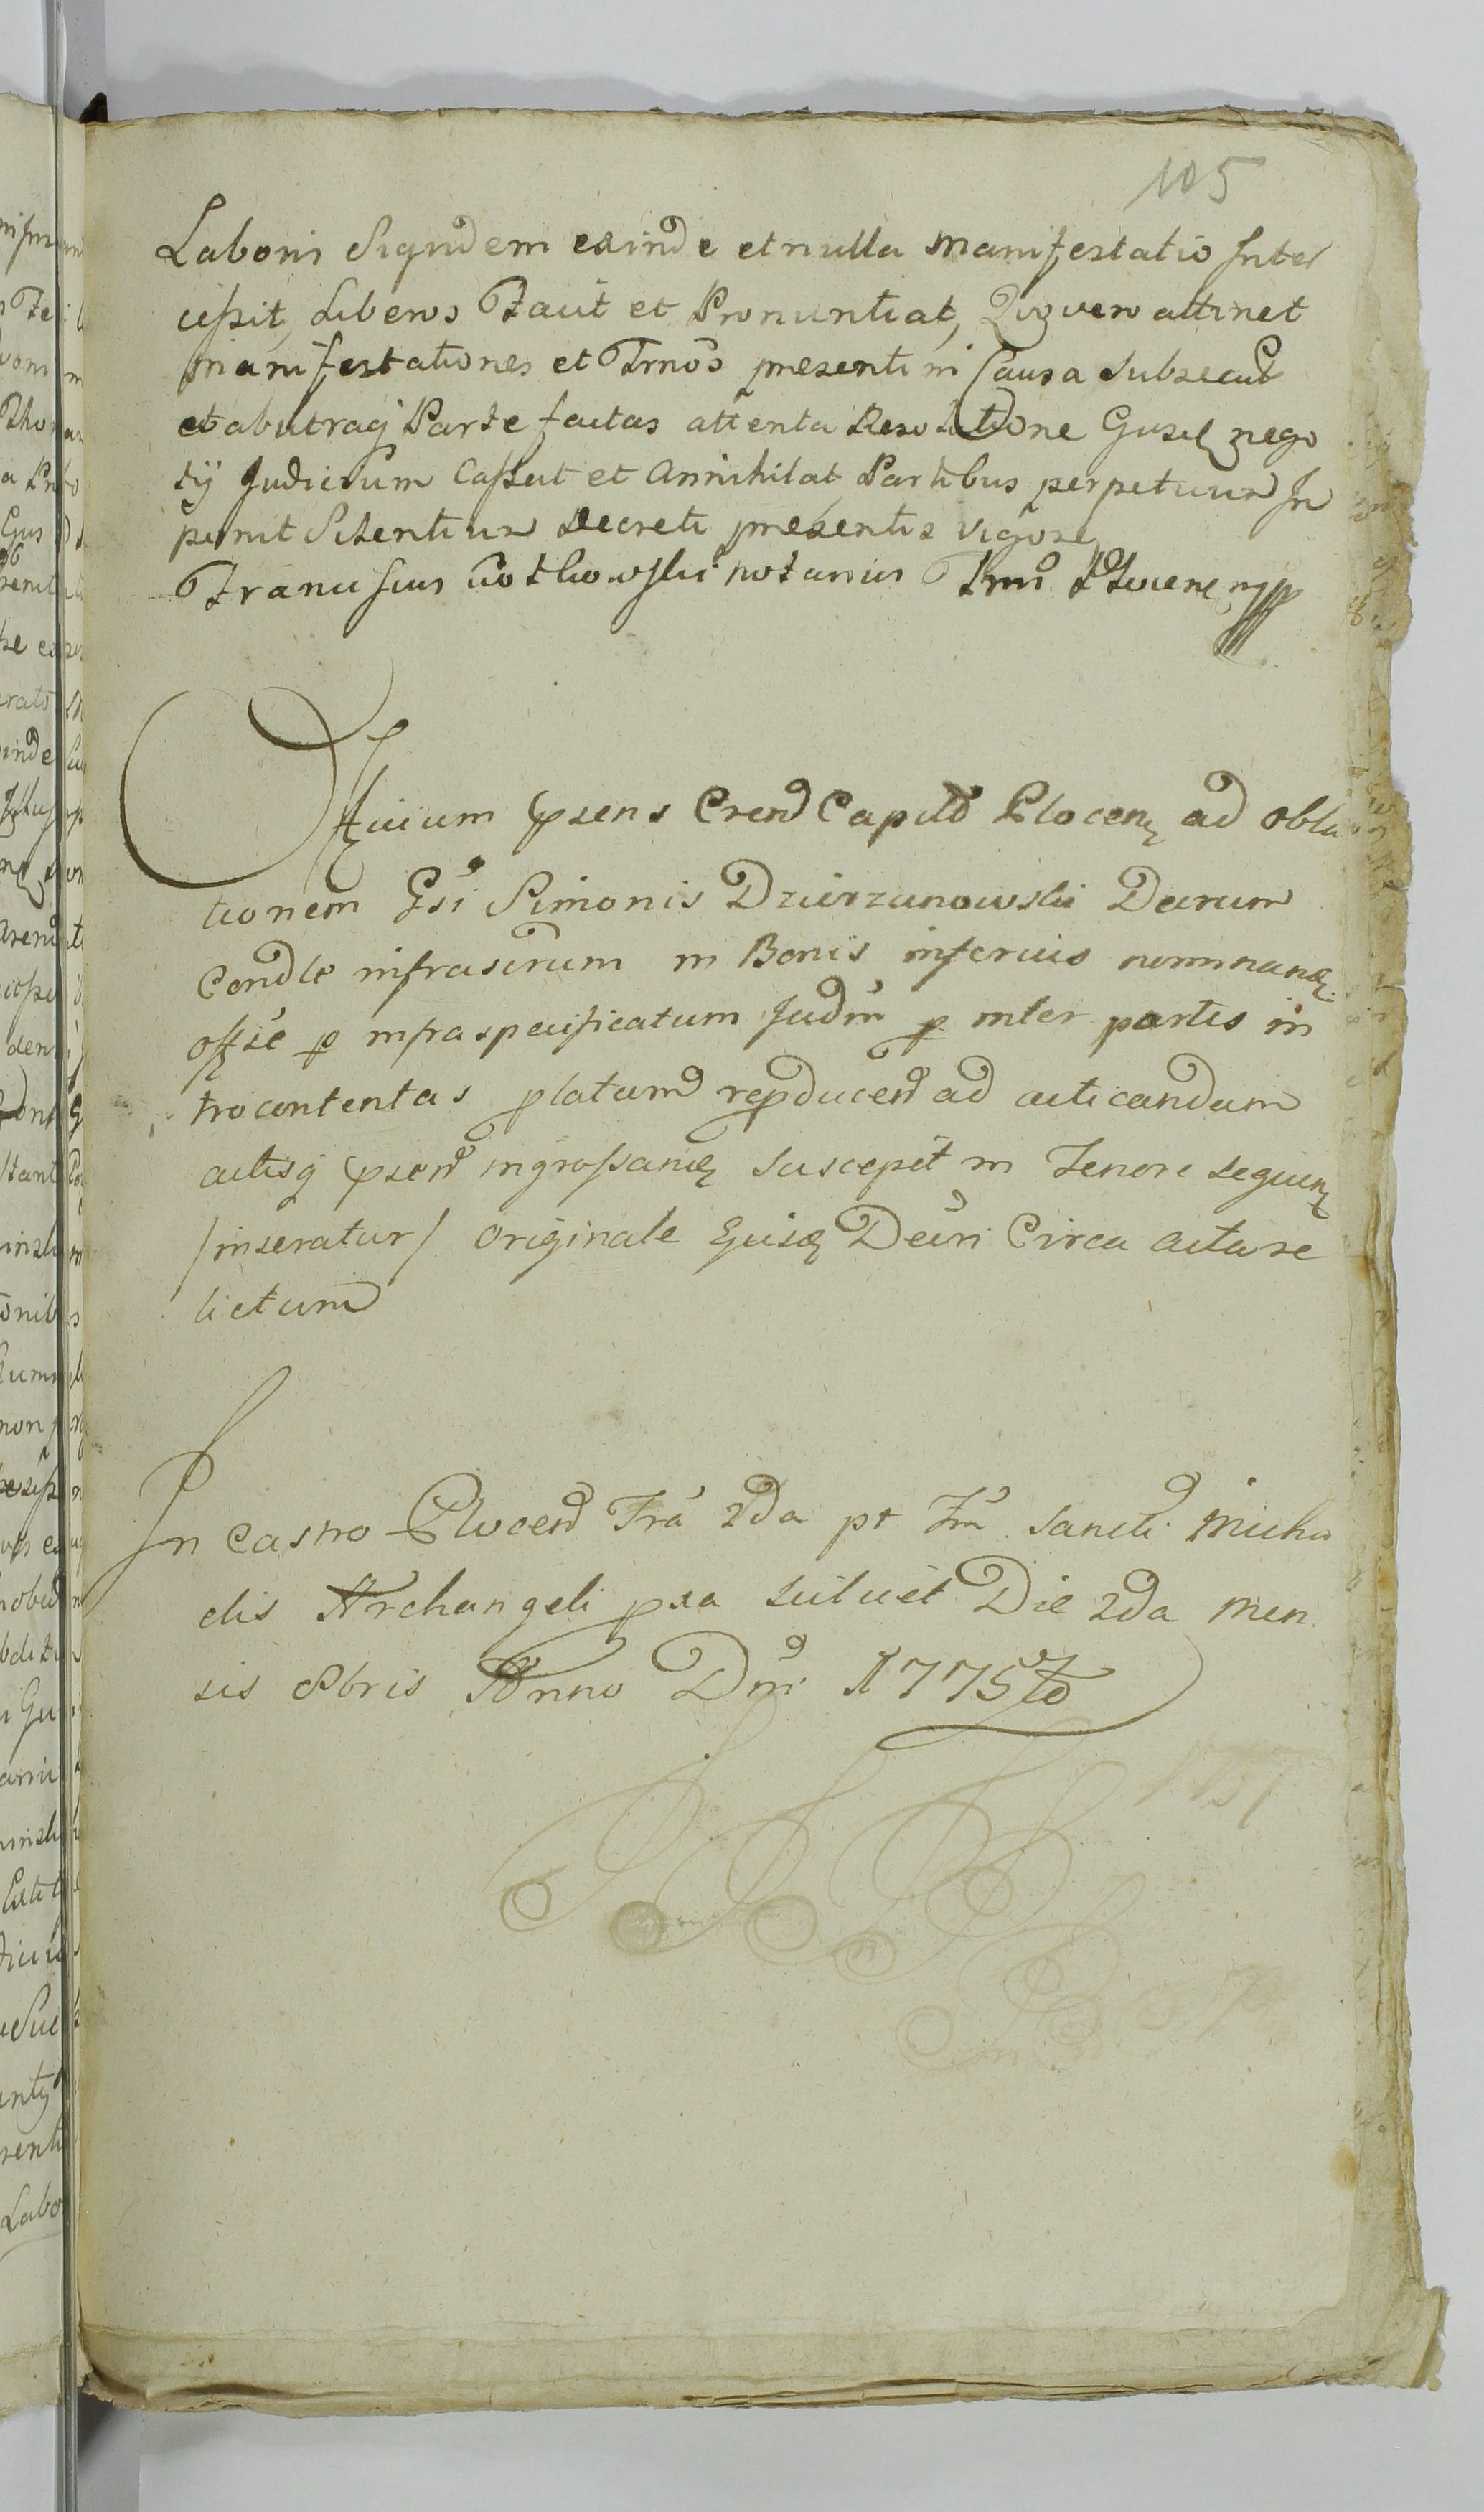 105
Laboris Siqudem exinde et nulla Manifestatio Inter
cessit, Liberos Facit et Pronuntiat, Quo vero attinet
Manifestationes et Trnos presenti in Causa Subsecut
et ab utraq Parte factas attenta Resolutione Gusd nego
tij Judicium Cassat et Annihilat Partibus perpetuum Im
ponit Silentium Decreti presentis vigore
Franciscus notarius
Officium psens Crend Capitle Plocen ad obla
tionem Gsi Simonis Dzierzanowski Decrum
Condle infrascrum in Bonis inferius nominand
offse p infraspecificatum Judm p inter partes in
trocontentas platum repducend ad acticandum
actisq psend ingrossand suscepit in Tenore sequen
/inseratur/ Originale Ejusd Decri Circa acta re
lictum
In Castro Plocend Fra 2da pt Fm Sancti Micha
elis Archangeli pxa scilicet Die 2da Men
sis 8bris Anno Dni 1775to